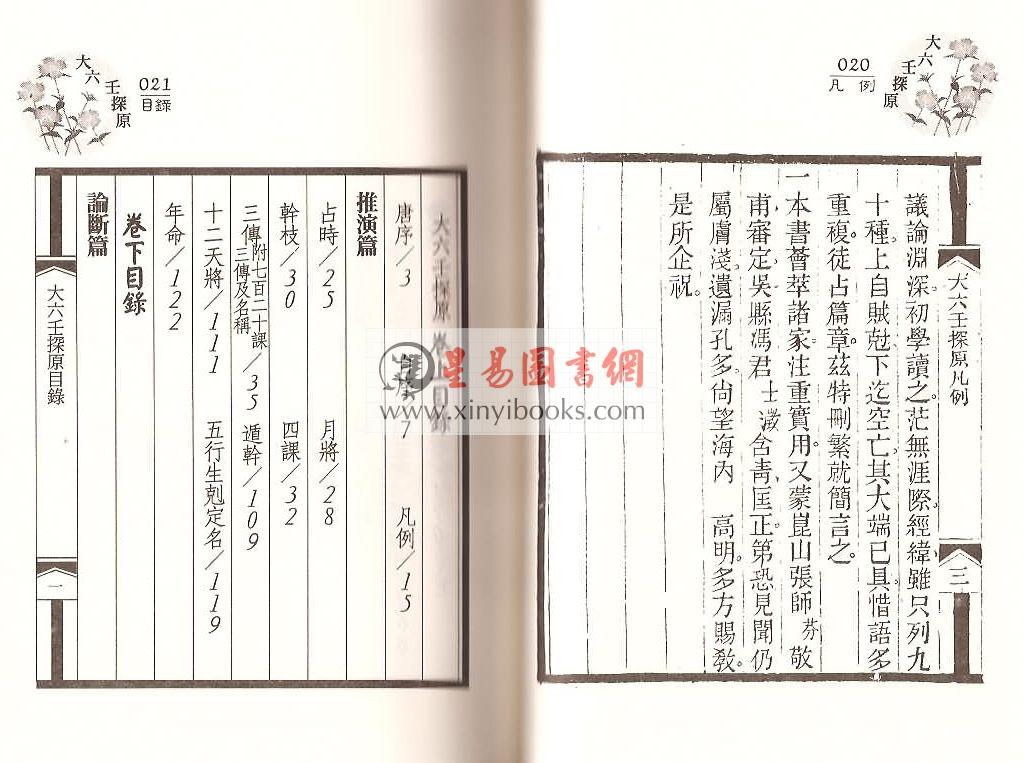 020
凡例
大六壬探原
大六壬探原凡例
三
議論淵深。初學讀之。茫無涯際。經緯雖只列九
十種。上自賊尅。下迄空亡。其大端已具。惜語多
重複。徒占篇章。茲特刪繁就簡言之。
一本書薈萃諸家。注重實用。又蒙崑山張師芬敬
甫審定。吳縣馮君士澂含靑匡正。第恐見聞仍
屬膚淺。遺漏孔多。尙望海內　高明。多方賜敎。
是所企祝。
021
目錄
大六壬探原
大六壬探原 卷上目錄
唐序/3　自序/7　凡例/15
推演篇
占時/25　月將/28
幹枝/30　四課/32
三傳附七百二十課三傳及名稱/35　遁幹/109
十二天將/111　五行生剋定名/119
年命/122
卷下目錄
論斷篇
大六壬探原目錄
一
星易圖書網
www.xinyibooks.com